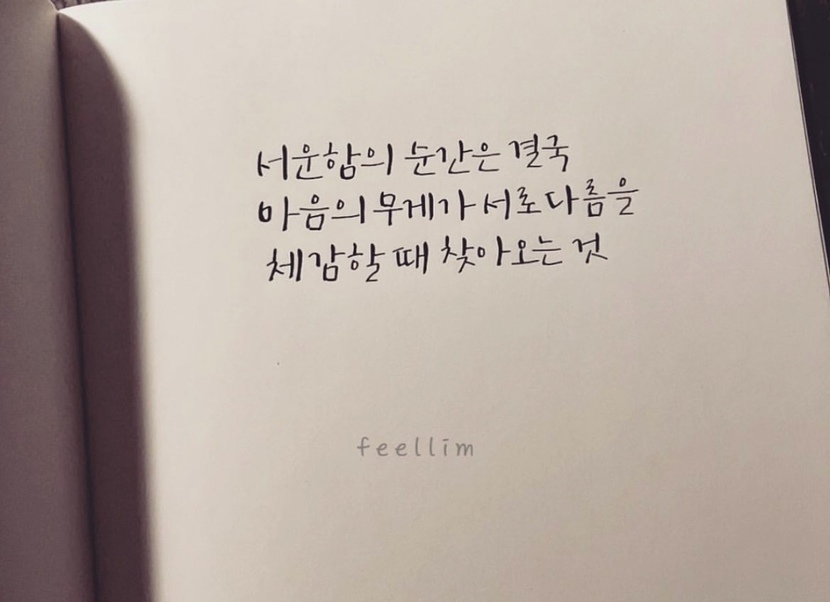 서운함의 순간은 결국
마음의 무게가 서로 다름을
체감할 때 찾아오는 것
feellim